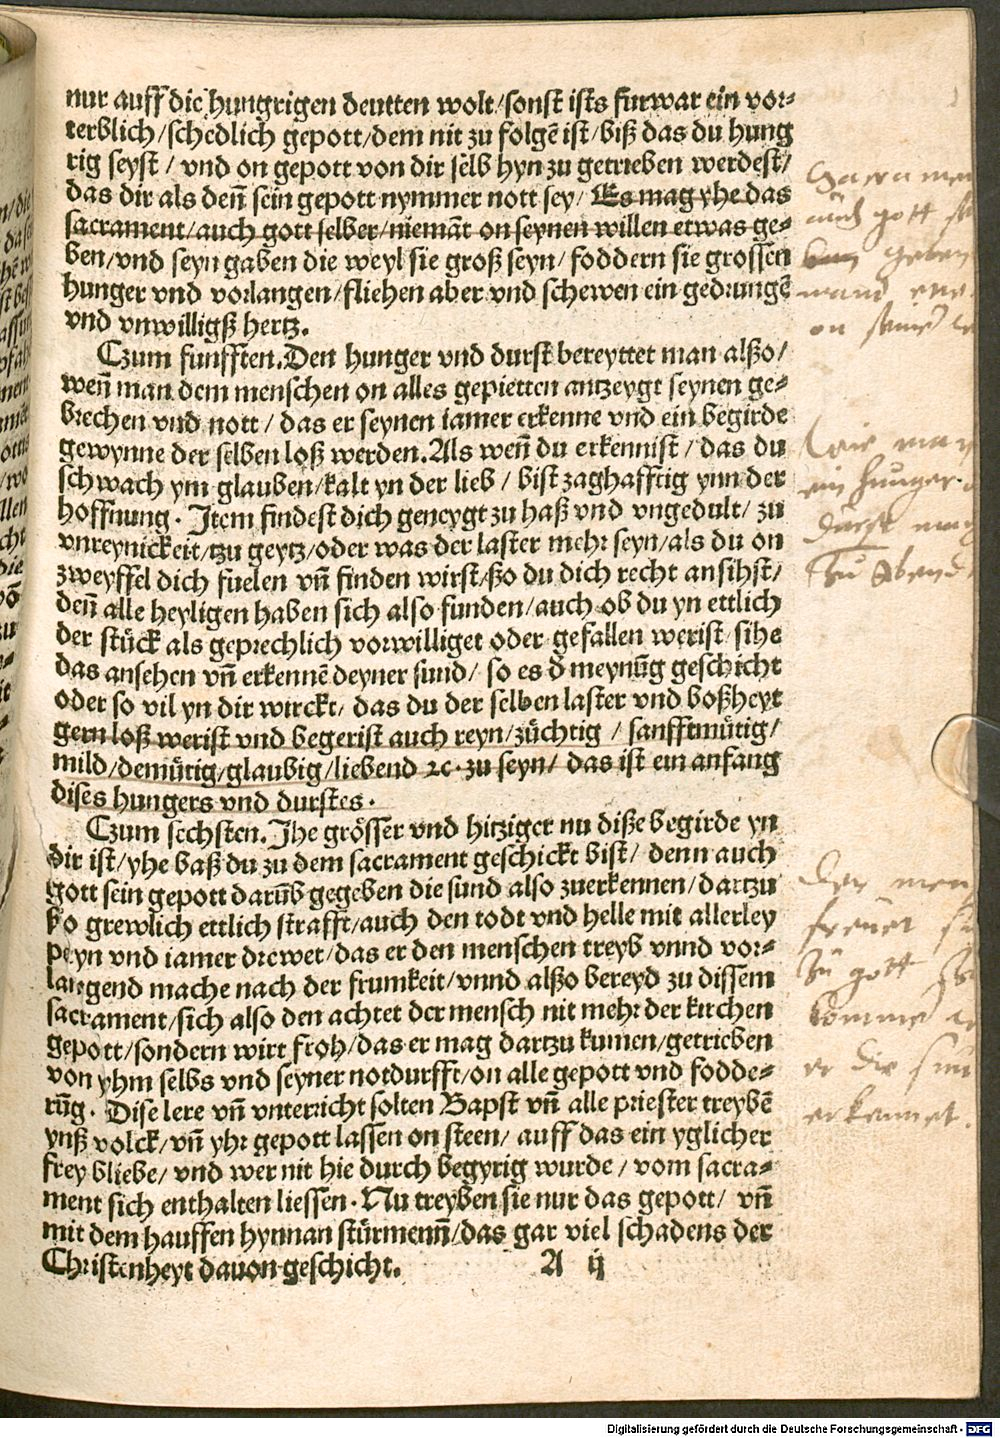 nur auff die hungrigen deutten wolt/sonst ists furwar ein vor-
terblich/schedlich gepott/dem nit zu folgē ist/biß das du hung
rig seyst/ vnd on gepott von dir selb hyn zu getrieben werdest/
das dir als deñ sein gepott nymmer nott sey/ Es mag yhe das
sacrament/auch gott selber/niemāt on seynen willen etwas ge-
ben/vnd seyn gaben die weyl sie groß seyn/ foddern sie grossen
hunger vnd vorlangen/fliehen aber vnd schewen ein gedrungē
vnd vnwilligß hertz.
Czum funfften.Den hunger vnd durst bereyttet man alßo/
weñ man dem menschen on alles gepietten antzeygt seynen ge-
brechen vnd nott/ das er seynen iamer erkenne vnd ein begirde
gewynne der selben loß werden.Als weñ du erkennist/ das du
schwach ym glauben/kalt yn der lieb/ bist zaghafftig ynn der
hoffnung. Item findest dich geneygt zu haß vnd vngedult/ zu
vnreynickeit/tzu geytz/oder was der laster mehr seyn/als du on
zweyffel dich fuelen vñ finden wirst/ßo du dich recht ansihst/
deñ alle heyligen haben sich also funden/auch ob du yn ettlich
der stück als geprechlich vorwilliget oder gefallen werist/sihe
das ansehen vñ erkennē deyner sund/ so es d̄ meynūg geschicht
oder so vil yn dir wirckt/ das du der selben laster vnd boßheyt
gern loß werist vnd begerist auch reyn/züchtig/ sanfftmütig/
mild/demütig/glaubig/liebend ⁊c. zu seyn/ das ist ein anfang
dises hungers vnd durstes.
Czum sechsten.Ihe grösser vnd hitziger nu diße begirde yn
dir ist/yhe baß du zu dem sacrament geschickt bist/ denn auch
gott sein gepott darūb gegeben die sund also zuerkennen/dartzu
ßo grewlich ettlich strafft/auch den todt vnd helle mit allerley
peyn vnd iamer drewet/das er den menschen treyb vnnd vor-
langend mache nach der frumkeit/vnnd alßo bereyd zu dissem
sacrament/sich also den achtet der mensch nit mehr der kirchen
gepott/sondern wirt froh/das er mag dartzu kumen/getrieben
von yhm selbs vnd seyner notdurfft/on alle gepott vnd fodde-
rūg. Dise lere vñ vnterricht solten Bapst vñ alle priester treybē
ynß volck/vñ yhr gepott lassen on steen/ auff das ein yglicher
frey bliebe/ vnd wer nit hie durch begyrig wurde/ vom sacra-
ment sich enthalten liessen. Nu treyben sie nur das gepott/ vñ
mit dem hauffen hynnan stürmenñ/das gar viel schadens der
Christenheyt dauon geschicht. A ij
auch gott
geben
on
wie man
ein hunger
durst
zu Abend
Der
zu gott
er die
erkennet.
Digitalisierung gefördert durch die Deutsche Forschungsgemeinschaft - DFG